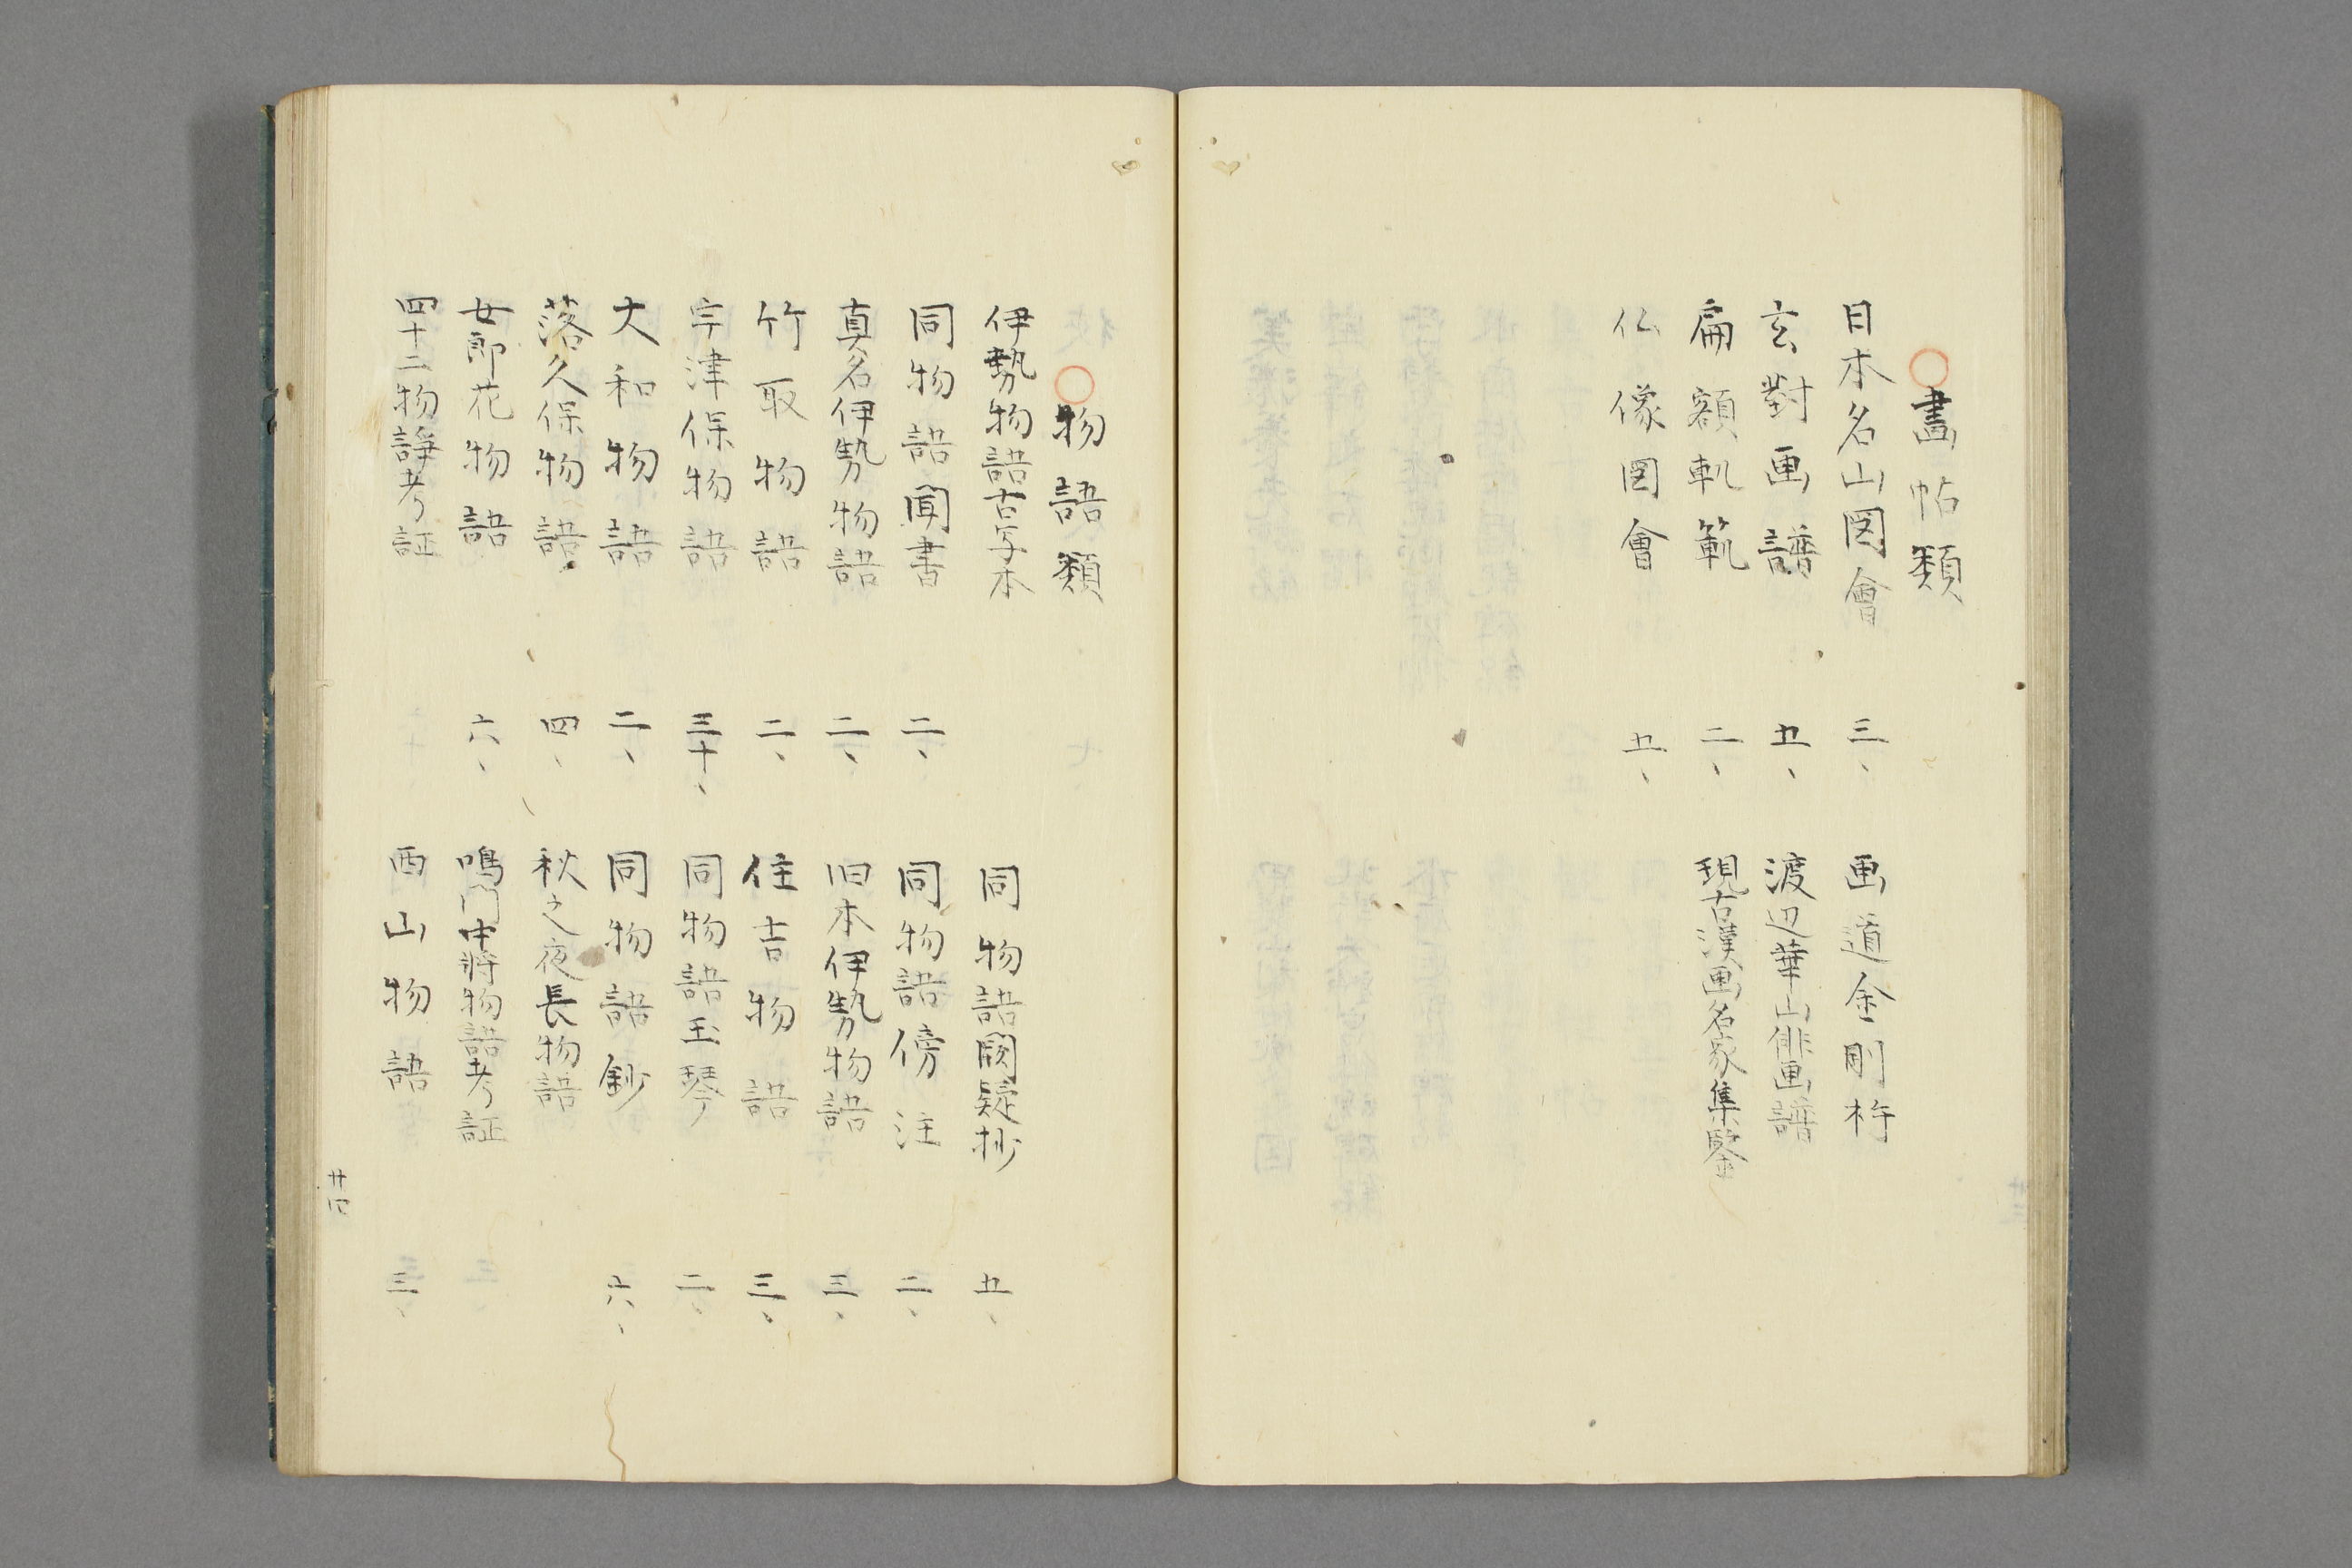 ○畫帖類
日本名山図會　三、　画道金剛杵
玄對画譜　五、　渡辺華山俳画譜
扁額軌範　二、　現古漢画名家集鑒
仏像図會　五、
○物語類
伊勢物語古写本　同物語闕疑抄　五、
同物語聞書　二、　同物語傍注　二、
真名伊勢物語　二、　旧本伊勢物語　三、
竹取物語　二、　住吉物語　三、
宇津保物語　三十、　同物語玉琴　二、
大和物語　二、　同物語鈔　六、
落久保物語　四、　秋之夜長物語
女郎花物語　六、　鳴門中将物語考証
四十二物諍考証　西山物語　三、
廿四